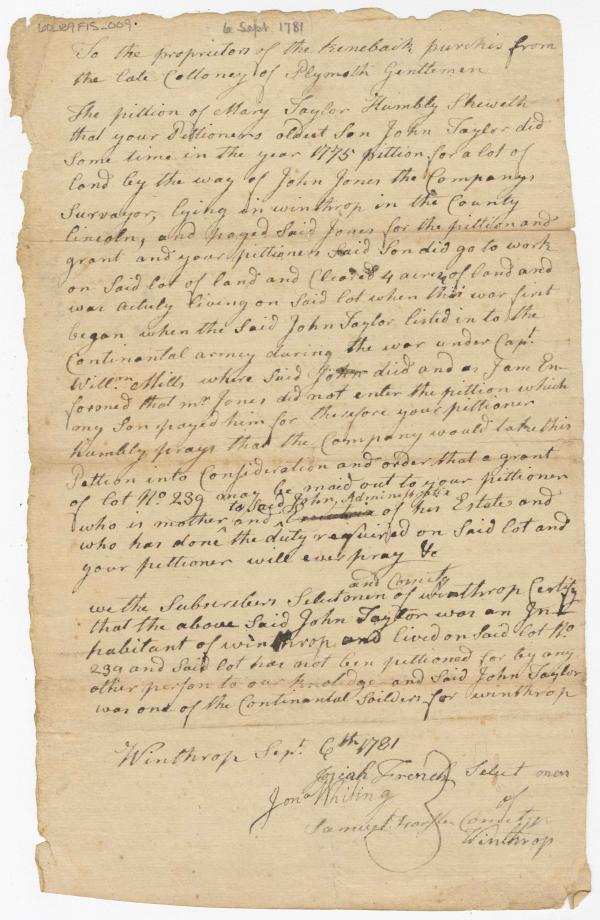 60L489F1S_009.
6 Sept 1781
To the proprietors of the Kenebaik purchis from
the late Colloney of Plymoth Gentlemen
The pittion of Mary Taylor Humbly Sheweth
that your Pettioners oldest Son John Taylor did
Some time in the year 1775 pittion for a lot of
land by the way of John Jones the Companys
Survayor, lying in winthrop in the County
lincoln, and payed Said Jones for the pittion and
grant and your pittioners Said Son did go to work
on Said lot of land and Cleared 4 acres of land and
was actuly living on Said lot when this war first
began when the Said John Taylor listed in to the
Continantal armey during the war under Capt.
Willm Mills where Said John died and as I am En-
formed that mr Jones did not enter the pittion which
my Son payed him for therefore your pittioner
humbly prays that the Company would take this
Pettion into Consideration and order that a grant
of lot No 239 may be maid out to your pittioner
to Said John, Administratrix
who is mother and of his Estate and
who has done the duty required on Said lot and
your pettioner will ever pray &c
and Comitty
we the Subscribers Selutomen of winthrop Certify
that the above Said John Taylor was an In-
habitant of winthrop and lived on Said lot No
239 and Said lot has not ben pittioned for by any
other person to our knolidge and Said John Taylor
was one of the Continantal Soilders for winthrop
Winthrop Sept. 6th 1781
Josiah French Selut men
Jona Whiting of
Samuel Comitty
Winthrop